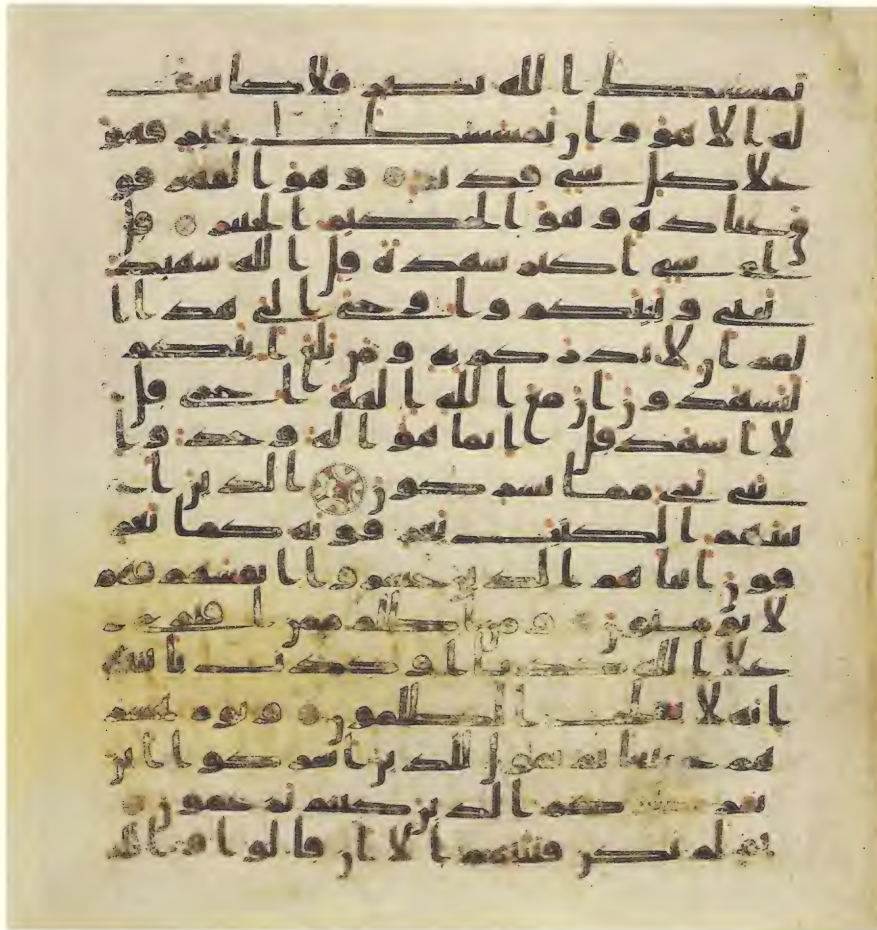 يمسسك الله بضر فلا كاشف
له الا هو وان يمسسك بخير فهو
علا كل شي قدير وهو القهر فو
ق عباده وهو الحكيم الخبير قل
اي شي اكبر شهدة قل الله شهيد
بيني وبينكم واوحي الي هذا ا
لقران لانذركم به ومن بلغ اينكم
لتشهدون ان مع الله الهة اخرى قل
لا اشهد قل انما هو اله وحد وا
نني بري مما تشركون الذين ا
تينهم الكتب يعرفونه كما يعر
فون ابناهم الذين خسروا انفسهم فهم
لا يومنون ومن اظلم ممن افترى
علا الله كذبا او كذب بايته
انه لا يفلح الظلمون ويوم نحشر
هم جميعا ثم نقول للذين اشركوا اين
شركاوكم الذين كنتم تزعمون
ثم لم تكن فتنتهم الا ان قالوا والله